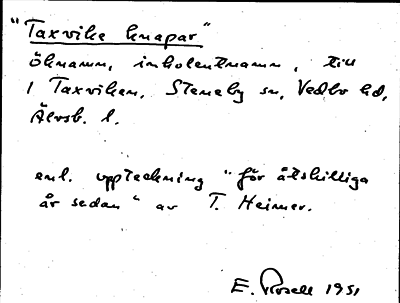 "Taxvike knapar"
öknamn, inkolentnamn, till
1 Taxviken, Steneby sn, Vedbo hd,
Älvsb. l.
enl. uppteckning "för åtskilliga
år sedan" av T. Heimer.
E. Rosell 1951